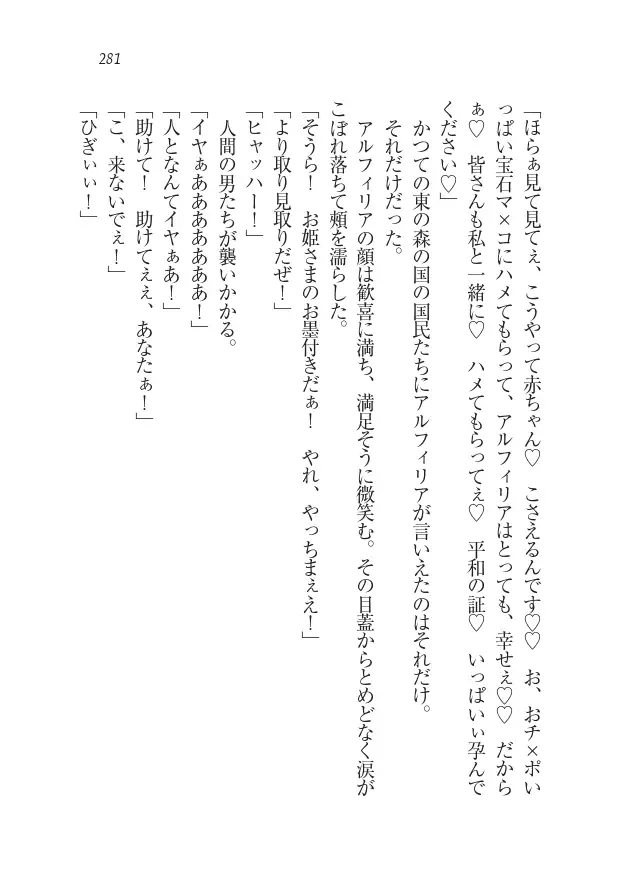 281
「ほらぁ見て見てぇ、こうやって赤ちゃん♡　こさえるんです♡♡　お、おチ×ポい
っぱい宝石マ×コにハメてもらって、アルフィリアはとっても、幸せぇ♡♡　だから
ぁ♡　皆さんも私と一緒に♡　ハメてもらってぇ♡　平和の証♡　いっぱいぃ孕んで
ください♡」
　かつての東の森の国の国民たちにアルフィリアが言いえたのはそれだけ。
　それだけだった。
　アルフィリアの顔は歓喜に満ち、満足そうに微笑む。その目蓋からとめどなく涙が
こぼれ落ちて頬を濡らした。
「そうら！　お姫さまのお墨付きだぁ！　やれ、やっちまぇえ！」
「より取り見取りだぜ！」
「ヒャッハー！」
　人間の男たちが襲いかかる。
「イヤぁあああああああ！」
「人となんてイヤぁあ！」
「助けて！　助けてぇぇ、あなたぁ！」
「こ、来ないでぇ！」
「ひぎぃぃ！」